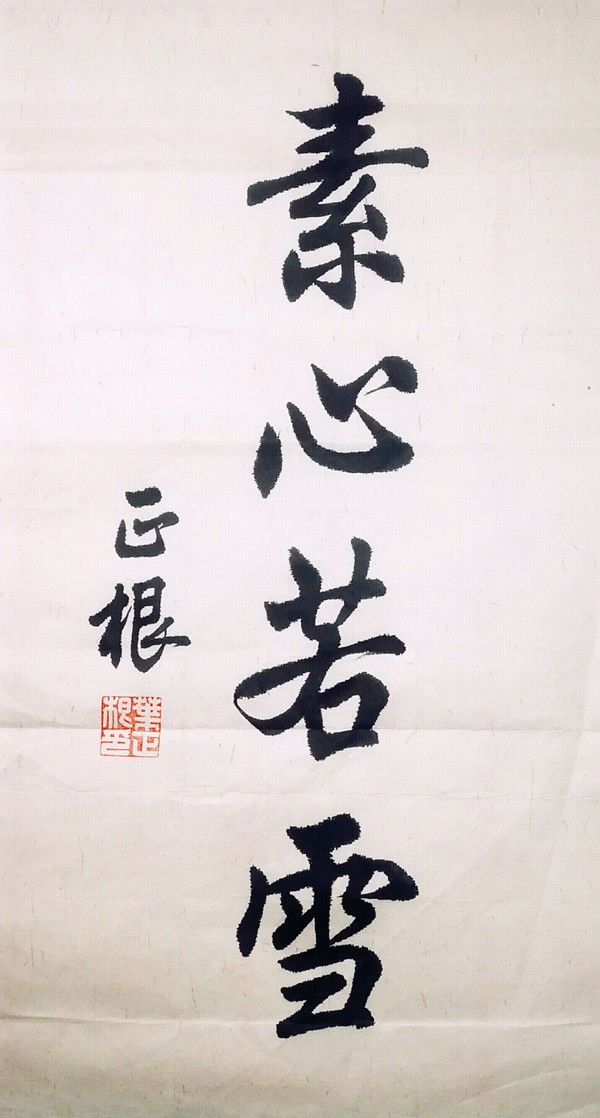 素心若雪
正根
葉正根印